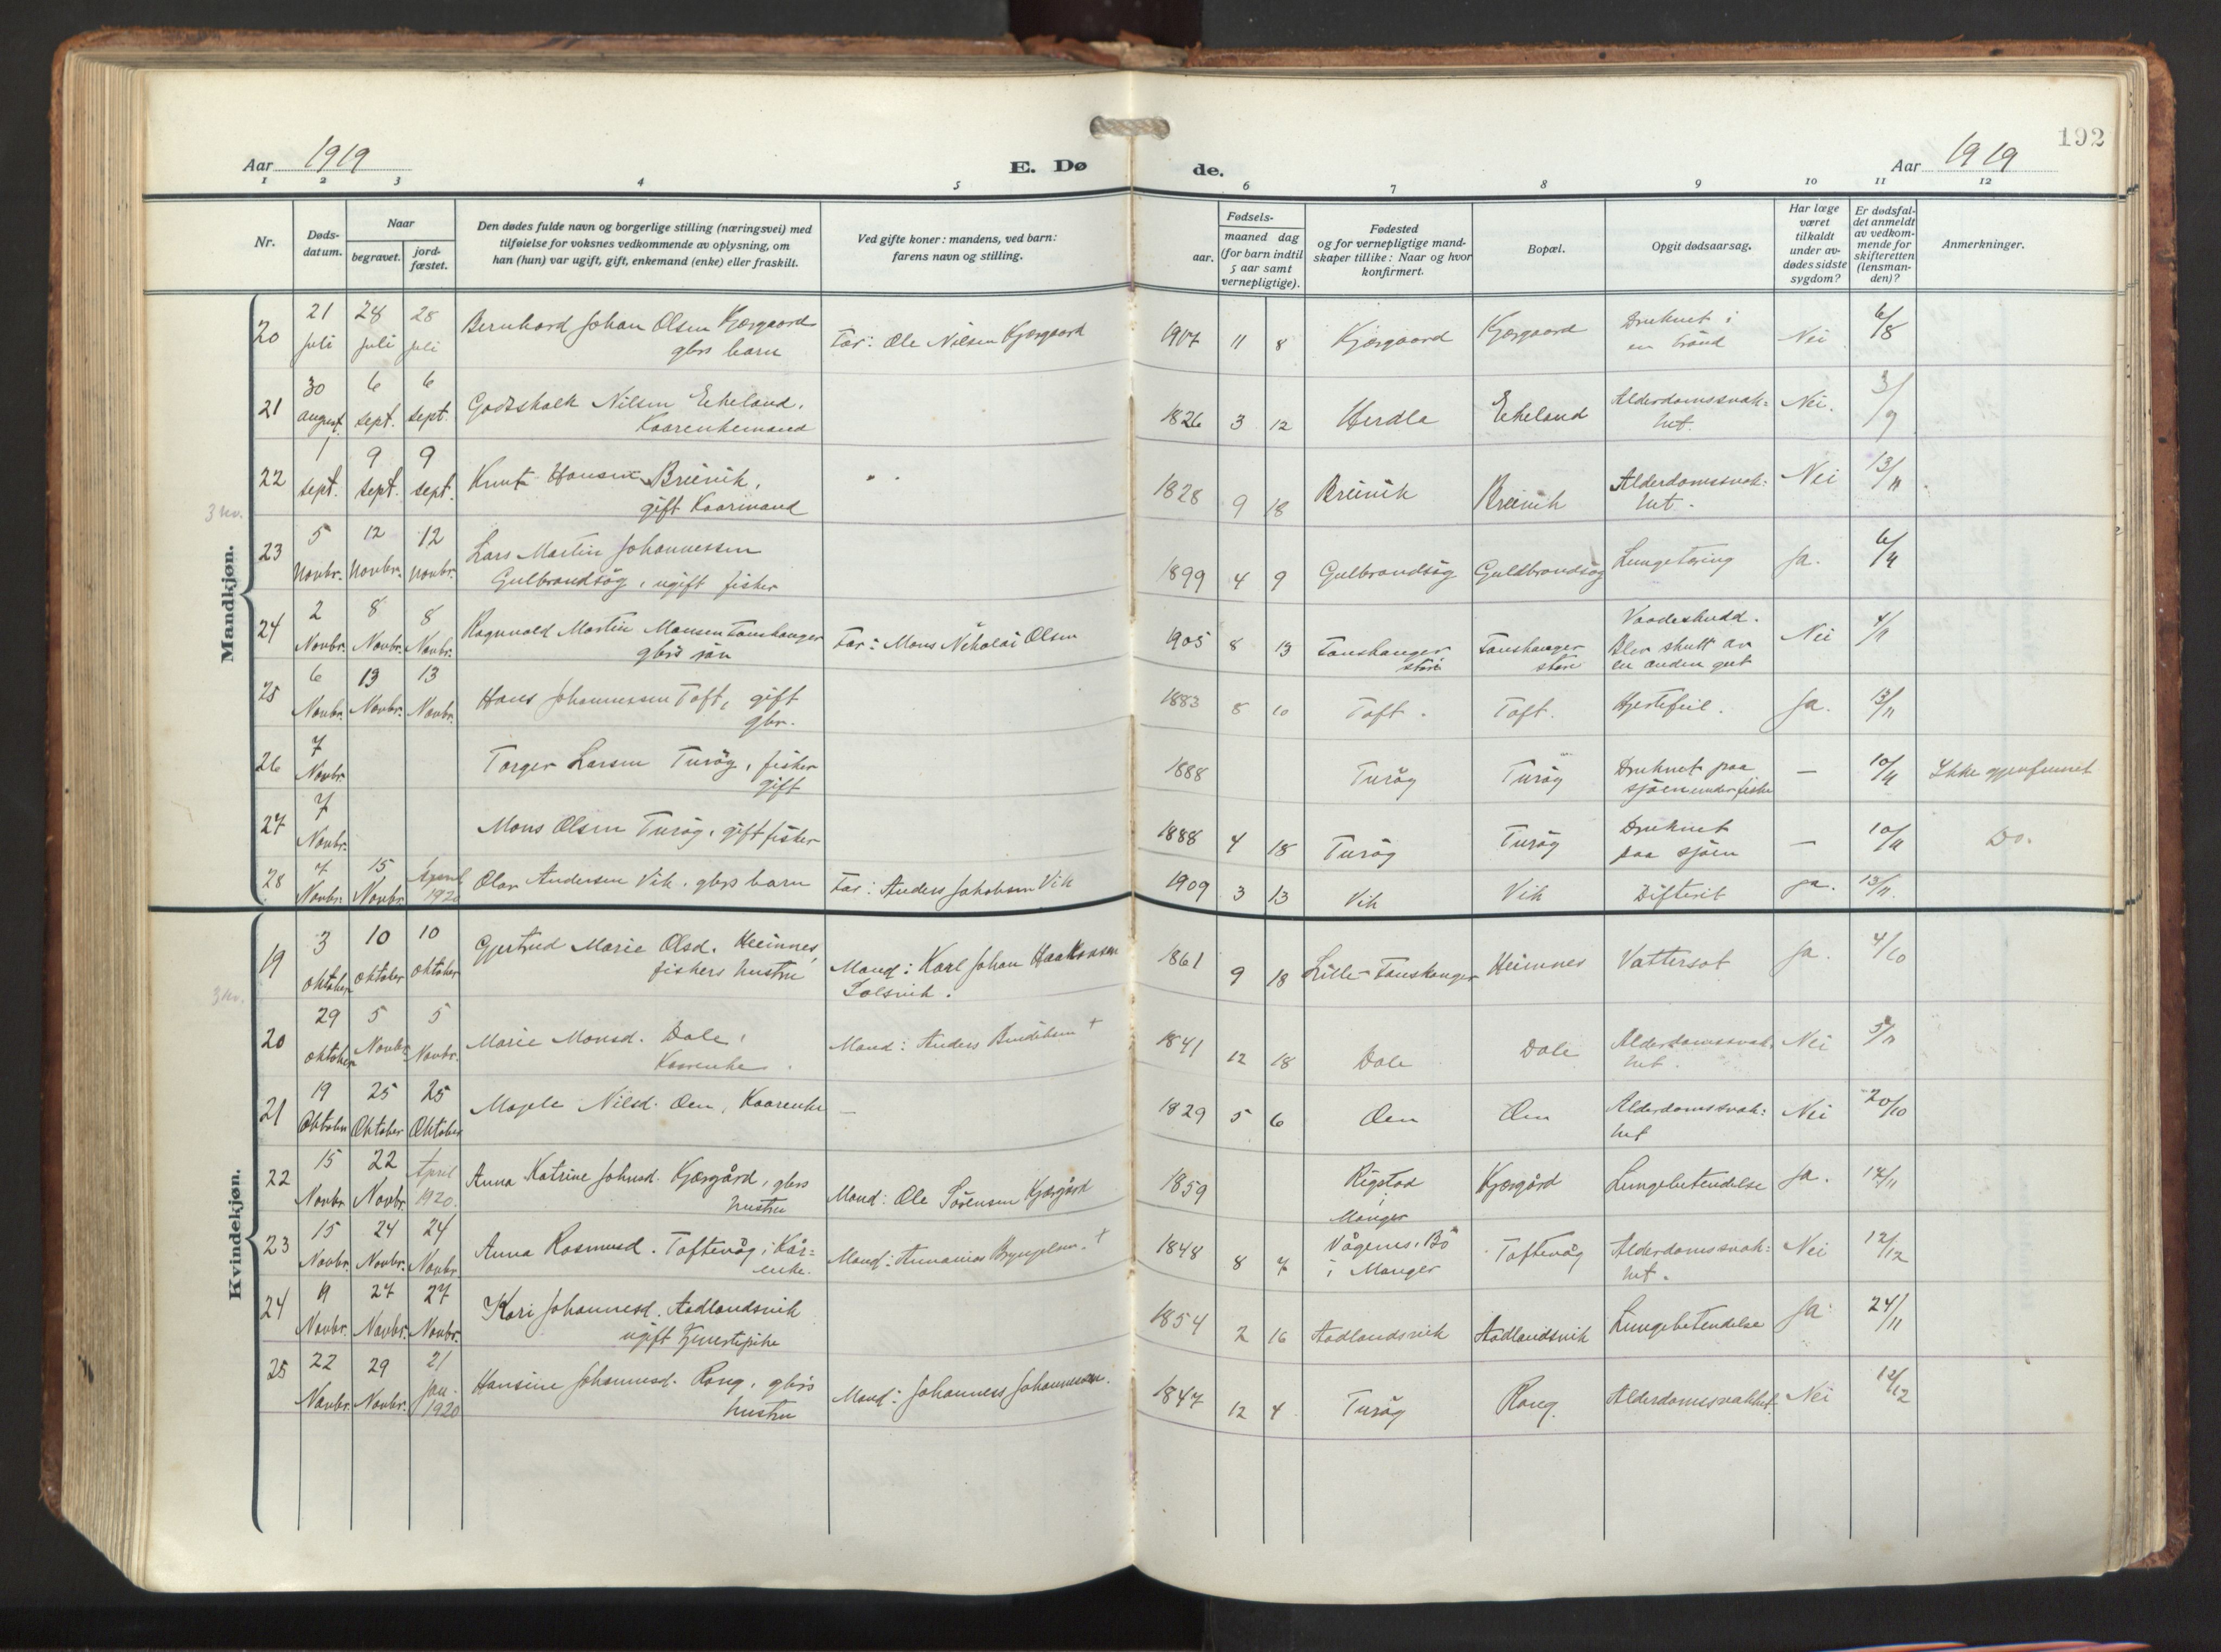 192
Aar 1919
E. Dø de.
Aar 1919
1 2 3 4 5 6 7 8 9 10 11 12
Nr.
Døds-
datum.
Naar
begravet.
jord-
fæstet.
Den dødes fulde navn og borgerlige stilling (næringsvei) med
tilføielse for voksnes vedkommende av oplysning, om
han (hun) var ugift, gift, enkemand (enke) eller fraskilt.
Ved gifte koner: mandens, ved barn:
farens navn og stilling.
Fødsels-
aar.
maaned dag
(for barn indtil
5 aar samt
vernepligtige).
Fødested
og for vernepligtige mand-
skaper tillike: Naar og hvor
konfirmert.
Bopæl.
Opgit dødsaarsag.
Har læge
været
tilkaldt
under av-
dødes sidste
sygdom?
Er dødsfal-
det anmeldt
av vedkom-
mende for
skifteretten
(lensman-
den)?
Anmerkninger.
Mandkjøn.
20 21 juli 28 juli 28 juli Bernhard Johan Olsen Kjærgaard gbrs barn Far: Ole Nilsen Kjærgaard 1917 11 8 Kjærgaard Kjærgaard Druknet i en brønd Nei 6/8
21 30 august 6 sept. 6 sept. Godtskalk Nilsen Eikeland, Kaarenkemand 1826 3 12 Herdla Eikeland Alderdomssvak=het. Nei. 3/9
22 1 sept. 9 sept. 9 sept. Knut Hansen Breivik, gift Kaarmand " " 1828 9 18 Breivik Breivik Alderdomssvak=het. Nei 13/11
3 kv.
23 5 Novbr. 12 Novbr. 12 novbr. Lars Martin Johannessen Gulbrandsøg, ugift fisker 1899 4 9 Gulbrandsøg Guldbrandsøg Lungetæring Ja. 6/11
24 2 Novbr. 8 Novbr. 8 Novbr. Ragnvald Martin Monsen Fauskanger gbrs søn Far: Mons Nikolai Olsen 1905 8 13 Fauskanger store Fauskanger store Vaadeskudd. Blev skutt av en anden gut Nei 4/11
25 6 Novbr. 13 Novbr. 13 Novbr. Hans Johannessen Toft, gift gbr. 1883 8 10 Toft. Toft. Hjertefeil. Ja. 13/11
26 7 Novbr. Torger Larsen Turøy, fisker gift 1888 Turøy Turøy Druknet paa sjøen under fiske — 10/11 Ikke gjenfunnet
27 7 Novbr. Mons Olsen Turøy, gift fisker 1888 4 18 Turøy Turøy Druknet paa sjøen — 10/11 Do.
28 7 Novbr. 15 Novbr. April 1920 Olav Andersen Vik, gbrs barn Far: Anders Jakobsen Vik 1909 3 13 Vik Vik Difterit ja. 13/11.
Kvindekjøn.
19 3 oktober 10 oktober 10 oktober Gjertrud Marie Olsd. Heimnes, fiskers hustru Mand: Karl Johan Haakonsen Solsvik. 1861 9 18 Lille-Fauskanger Heimnes Vattersot Ja. 4/10
3 kv.
20 29 oktober 5 Novbr. 5 Novbr. Marie Monsd. Dale, Kaarenke. Mand: Anders + 1841 12 18 Dale Dale Alderdomssvak.het. Nei 5/11
21 19 Oktober 25 Oktober 25 Oktober Magele Nilsd. Øen, Kaarenke — 1829 5 6 Øen Øen Alderdomssvak=het Nei 20/10
22 15 Novbr. 22 Novbr. April 1920. Anna Katrine Johnsd. Kjærgård, gbrs hustru Mand: Ole Sørensen Kjærgård 1859 Rigstad i Manger Kjærgård Lungebetendelse Ja. 17/11
23 15 Novbr. 24 Novbr. 24 Novbr. Anna Rasmusd. Toftevåg, Kår=enke. Mand: Annanias Brynjelsen. + 1848 8 7 Vågenes, Bø i Manger Toftevåg Alderdomssvak=het. Nei 12/12
24 19 Novbr. 27 Novbr. 27 Novbr. Kari Johannesd. Aadlandsvik ugift tjenestepike 1854 2 16 Aadlandsvik Aadlandsvik Lungebetendelse Ja 24/11
25 22 Novbr. 29 Novbr. 21 Jan. 1920 Hansine Johannesd. Rong, gbrs hustru Mand: Johannes Johannessen. 1847 12 4 Turøy Rong. Alderdomssvakhet. Nei 12/12